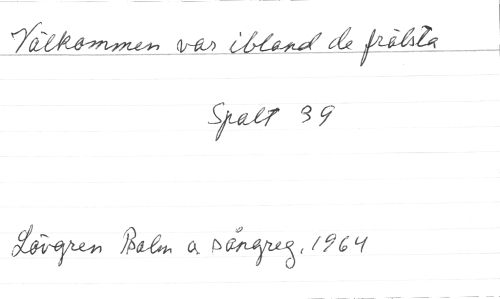 Välkommen var ibland de frälsta
Spalt 39
Lövgren Psalm o. sångreg. 1964